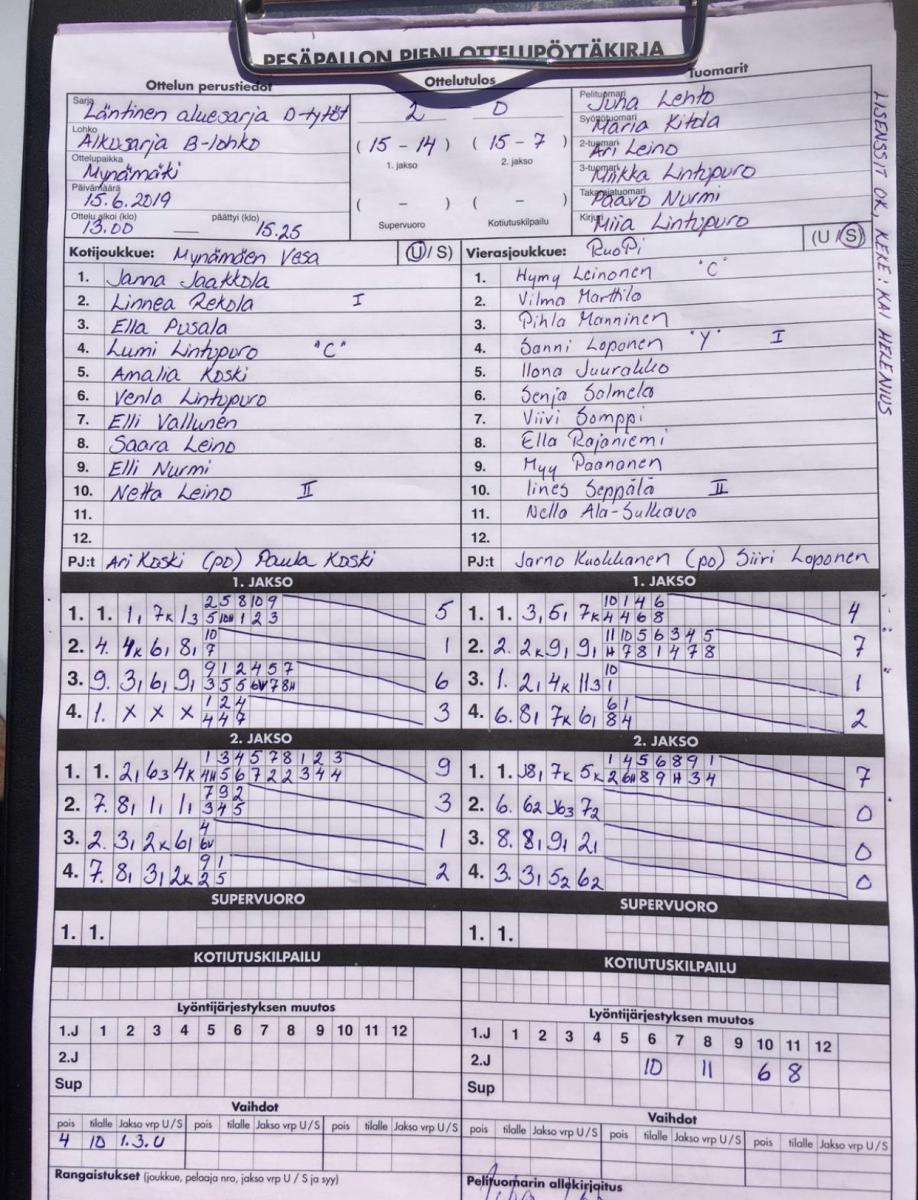 PESÄPALLON PIENI OTTELUPÖYTÄKIRJA
Ottelun perustiedot
Sarja Läntinen aluesarja D-tytöt
Lohko Alkusarja B-lohko
Ottelupaikka Mynämäki
Päivämäärä 15.6.2019
Ottelu alkoi (klo) päättyi (klo)
13.00 — 15.25
Ottelutulos
2 0
(15 - 14) (15 - 7)
1. jakso 2. jakso
( - ) ( - )
Supervuoro Kotiutuskilpailu
Tuomarit
Pelituomari Juha Lehto
Syöttötuomari Maria Kitola
2-tuomari Ari Leino
3-tuomari Miikka Lintupuro
Takarajatuomari Paavo Nurmi
Kirjuri Miia Lintupuro
LISENSSIT OK, KEKE: KAI HELENIUS
Kotijoukkue: Mynämäen Vesa (U/S)
1. Janna Jaakkola
2. Linnea Rekola I
3. Ella Pusala
4. Lumi Lintupuro "C"
5. Amalia Koski
6. Venla Lintupuro
7. Elli Vallunen
8. Saara Leino
9. Elli Nurmi
10. Netta Leino II
11.
12.
PJ:t Ari Koski (po) Paula Koski
Vierasjoukkue: RuoPi (U/S)
1. Hymy Leinonen "C"
2. Vilma Marttila
3. Pihla Manninen
4. Sanni Loponen "Y" I
5. Ilona Juurakko
6. Senja Salmela
7. Viivi Somppi
8. Ella Rajaniemi
9. Myy Paananen
10. Iines Seppälä II
11. Nella Ala-Sulkava
12.
PJ:t Jarno Kuokkanen (po) Siiri Loponen
1. JAKSO
2 5 8 10 9
1. 1. 1, 7K 13 5 10H 1 2 3 5
10
2. 4. 4K 6, 8, 7 1
9 1 2 4 5 7
3. 9. 3, 6, 9, 3 5 5 6V 7 8H 6
1 2 4
4. 1. X X X 4 4 7 3
1. JAKSO
10 1 4 6
1. 1. 3, 5, 7K 4 4 6 8 4
11 10 5 6 3 4 5
2. 2. 2K 9, 9, H 7 8 1 4 7 8 7
10
3. 1. 2, 4K 113 1 1
6 1
4. 6. 8, 7K 6, 8 4 2
2. JAKSO
1 3 4 5 7 8 1 2 3
1. 1. 2, 63 4K 4H 5 6 7 2 2 3 4 4 9
7 9 2
2. 7. 8, 1, 1, 3 4 5 3
4
3. 2. 3, 2K 6, 6V 1
9 1
4. 7. 8, 3, 2K 2 5 2
2. JAKSO
1 4 5 6 8 9 1
1. 1. J8, 7K 5K 2 6H 8 9 H 3 4 7
2. 6. 62 J63 72 0
3. 8. 8, 9, 2, 0
4. 3. 3, 52 62 0
SUPERVUORO
1. 1.
SUPERVUORO
1. 1.
KOTIUTUSKILPAILU
KOTIUTUSKILPAILU
Lyöntijärjestyksen muutos
1.J 1 2 3 4 5 6 7 8 9 10 11 12
2.J
Sup
Lyöntijärjestyksen muutos
1.J 1 2 3 4 5 6 7 8 9 10 11 12
2.J 10 11 6 8
Sup
Vaihdot
pois tilalle Jakso vrp U/S pois tilalle Jakso vrp U/S pois tilalle Jakso vrp U/S
4 10 1.3.U
Vaihdot
pois tilalle Jakso vrp U/S pois tilalle Jakso vrp U/S pois tilalle Jakso vrp U/S
Rangaistukset (joukkue, pelaaja nro, jakso vrp U / S ja syy)
Pelituomarin allekirjoitus